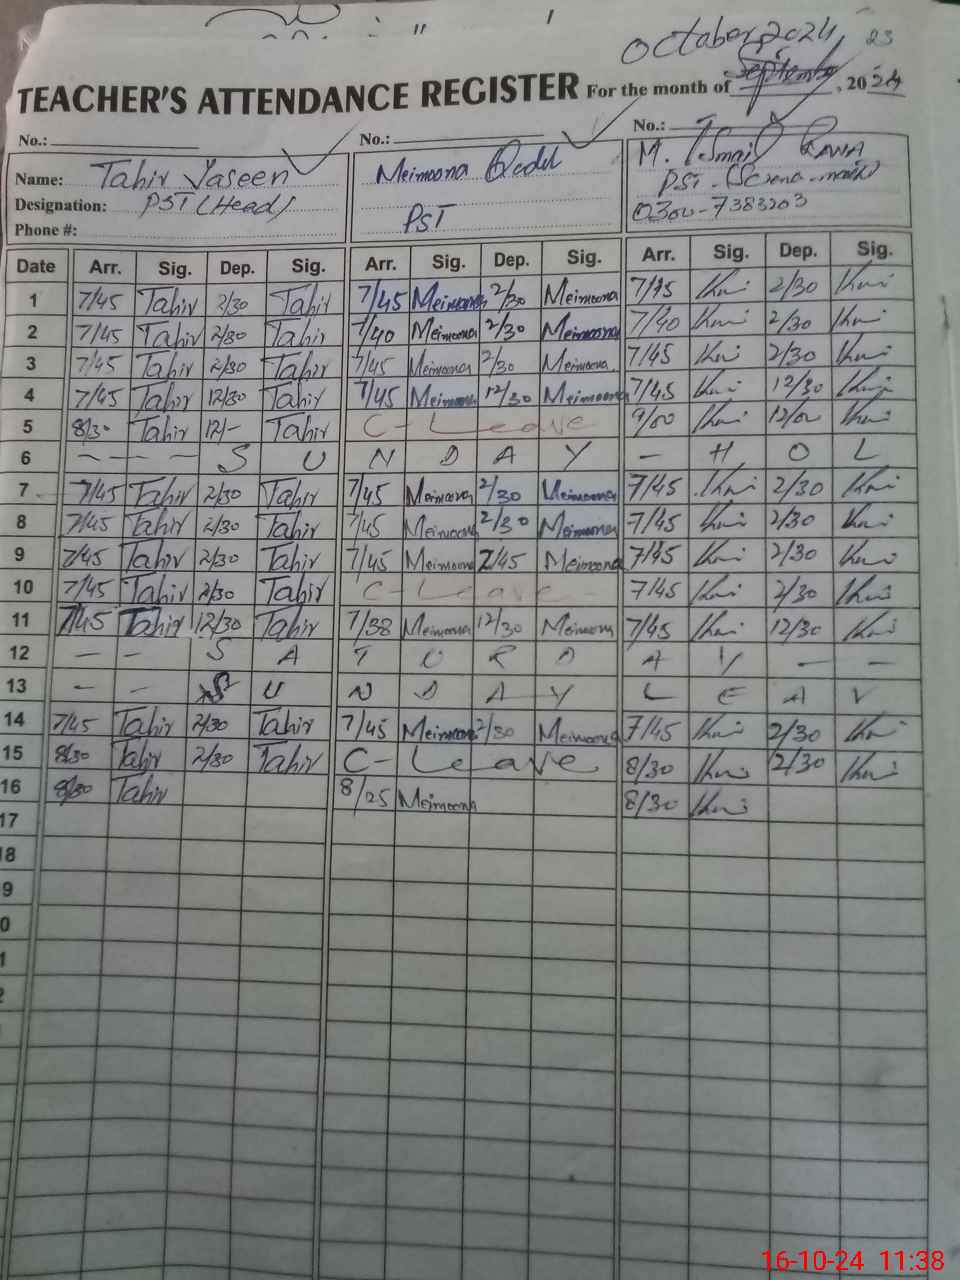 October 2024 23
TEACHER'S ATTENDANCE REGISTER For the month of September, 2024
No.: No.: No.:
Name: Tahir Yaseen Meimoona M. Ismail
Designation: PST (Head) PST PST
Phone #: 0300-7383203
Date Arr. Sig. Dep. Sig. Arr. Sig. Dep. Sig. Arr. Sig. Dep. Sig.
1 7/45 Tahir 2/30 Tahir 7/45 Meimoona 2/30 Meimoona 7/45 2/30
2 7/45 Tahir 2/30 Tahir 7/40 Meimoona 2/30 Meimoona 7/40 2/30
3 7/45 Tahir 2/30 Tahir 7/45 Meimoona 2/30 Meimoona 7/45 2/30
4 7/45 Tahir 12/30 Tahir 7/45 Meimoona 12/30 Meimoona 7/45 12/30
5 8/30 Tahir 12/- Tahir C-Leave 9/00 12/00
6 - - - - S U N D A Y - H O L
7 7/45 Tahir 2/30 Tahir 7/45 Meimoona 2/30 Meimoona 7/45 2/30
8 7/45 Tahir 2/30 Tahir 7/45 Meimoona 2/30 Meimoona 7/45 2/30
9 7/45 Tahir 2/30 Tahir 7/45 Meimoona 2/45 Meimoona 7/45 2/30
10 7/45 Tahir 2/30 Tahir C-Leave 7/45 2/30
11 7/45 Tahir 12/30 Tahir 7/38 Meimoona 12/30 Meimoona 7/45 12/30
12 - - S A T U R D A Y - -
13 - - S U N D A Y L E A V
14 7/45 Tahir 2/30 Tahir 7/45 Meimoona 2/30 Meimoona 7/45 2/30
15 8/30 Tahir 2/30 Tahir C-Leave 8/30 2/30
16 8/30 Tahir 8/25 Meimoona 8/30
17
18
9
0
1
2
16-10-24 11:38